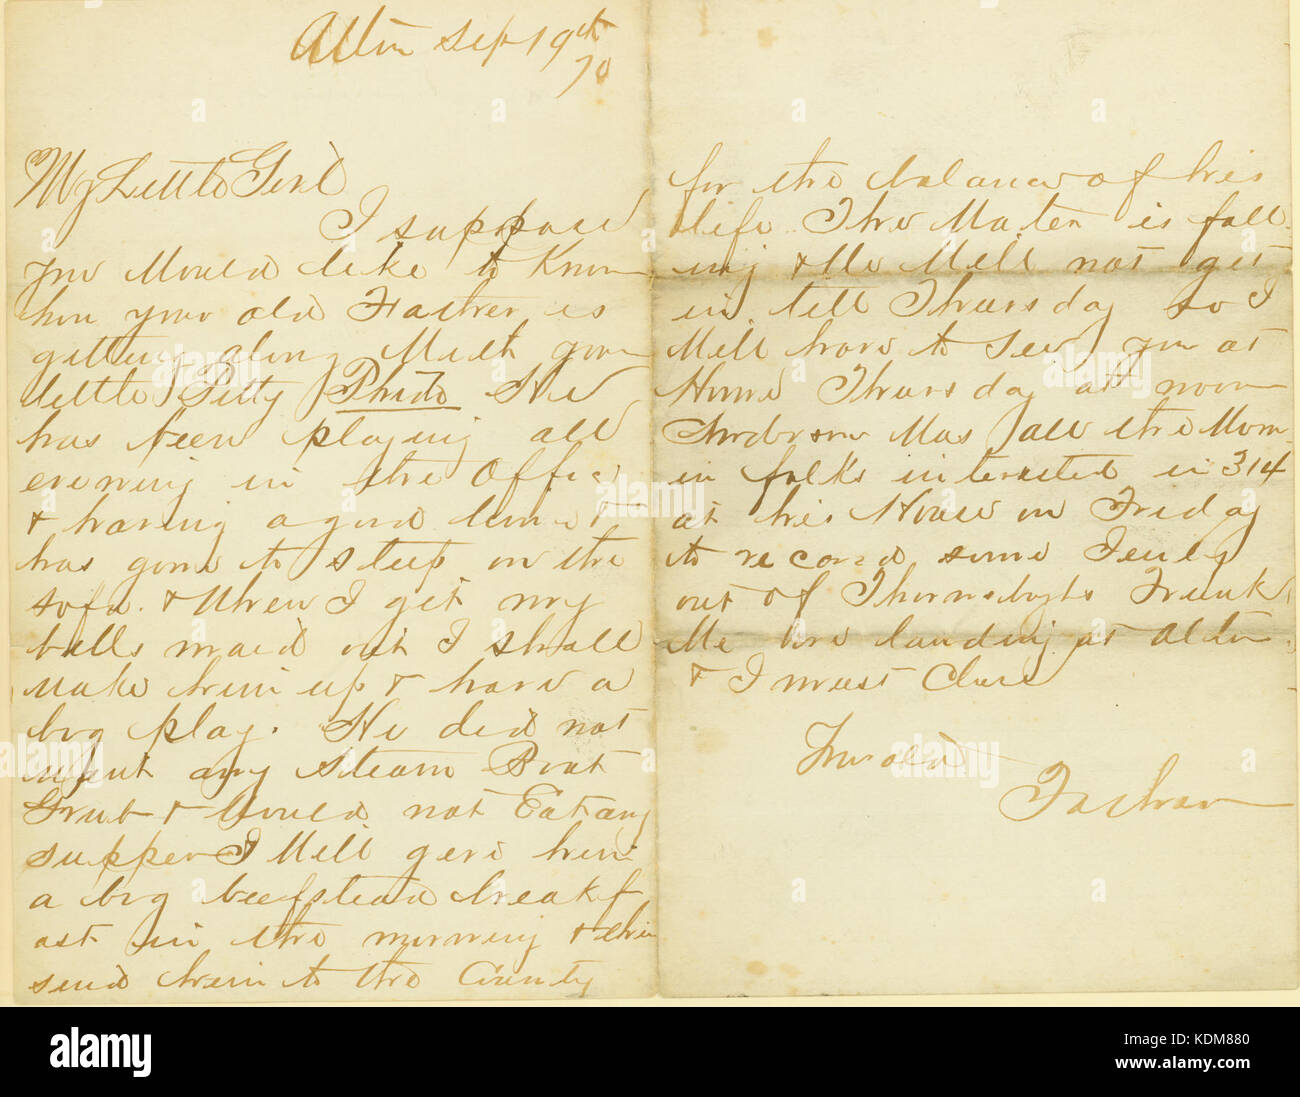 Alton Sep 19th
70
My Little Girl
I suppose
you Would like to Know
how your old Father is
getting along With your
little Petty He
has been playing all
evening in the Office
& having a good time &
has gone to sleep on the
sofa. & When I get my
bills maid out I shall
Make him up & have a
big play. He did not
want any Steam Boat
Grub & Would not Eat any
supper I Will give him
a big beefstead breakf
ast in the morning & then
send him to the County
for the balance of his
life. The Water is fall
ing & We Will not get
in till Thursday so I
Will have to See you at
Home Thursday at noon
Was all the
in folks interested in 314
at his House on Friday
to record some
out of Trunk
We are landing at Alton
& I must Close
Your old
Father
alamy
a
Image ID: KDM880
www.alamy.com